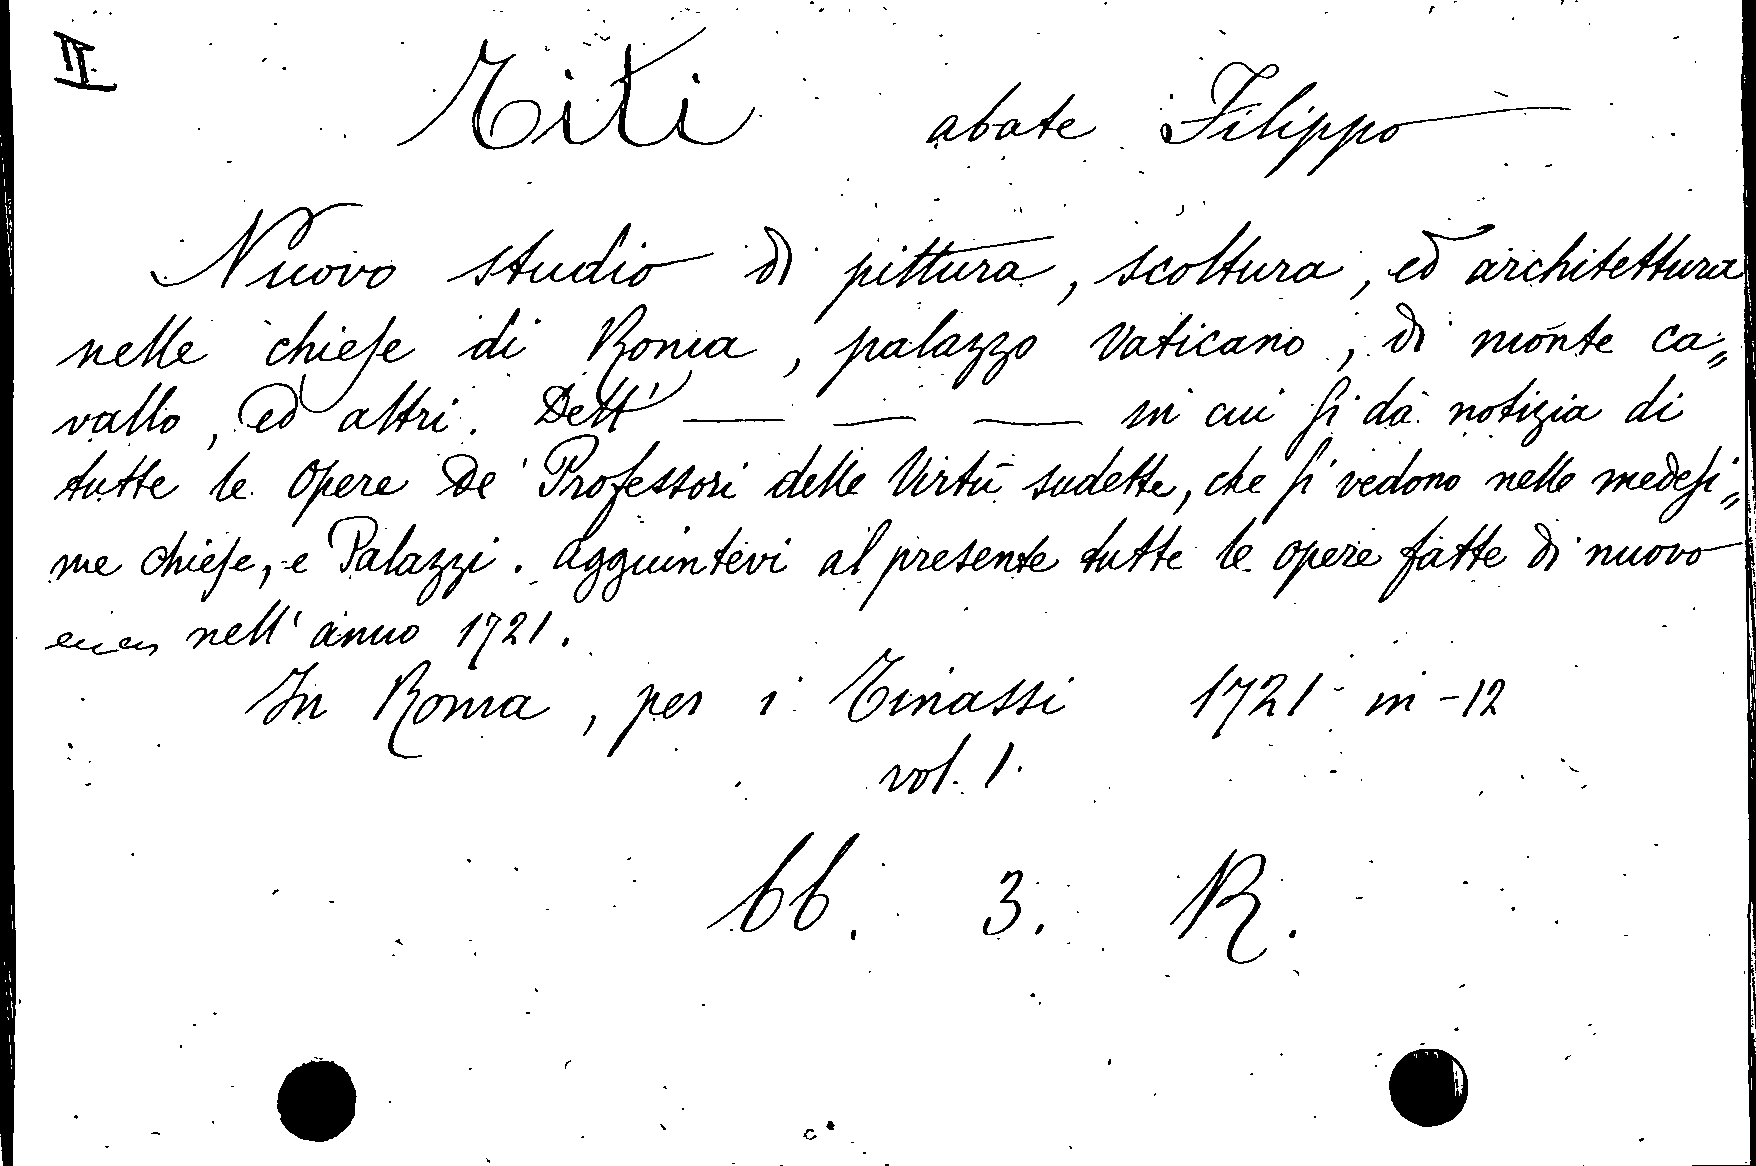 II
Titi abate Filippo
Nuovo studio di pittura, scoltura, ed architettura
nelle chiese di Roma, palazzo Vaticano, di monte ca„
vallo, ed altri. Dell' — — — in cui si dà notizia di
tutte le opere de' Professori delle Virtù sudette, che si vedono nelle medesi„
me chiese, e Palazzi. aggiuntevi al presente tutte le opere fatte di nuovo
nell' anno 1721.
In Roma, per i Tinassi 1721 in-12
vol. 1.
bb. 3. R.